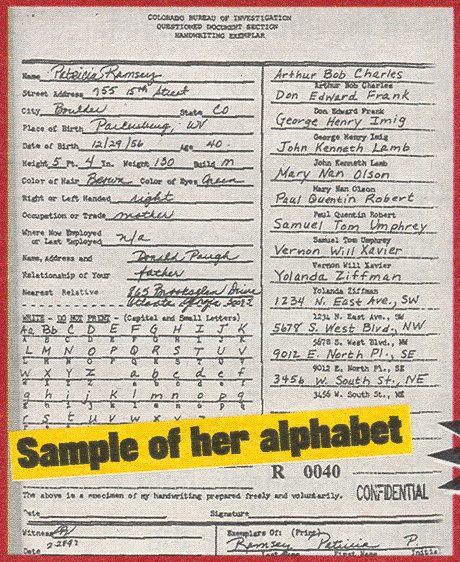 COLORADO BUREAU OF INVESTIGATION
QUESTIONED DOCUMENT SECTION
HANDWRITING EXEMPLAR
Name Patricia Ramsey
Street Address 755 15th Street
City Boulder State CO
Place of Birth Parkersburg, WV
Date of Birth 12/29/56 Age 40
Height 5 Ft. 4 In. Weight 130 Build M
Color of Hair Brown Color of Eyes Green
Right or Left Handed right
Occupation or Trade mother
Where Now Employed
or Last Employed n/a
Name, Address and Donald Paugh
Relationship of Your father
Nearest Relative 865 Drive
Atlanta
WRITE - DO NOT PRINT - (Capital and Small Letters)
Aa Bb C D E F G H I J K
A B C D E F G H I J K
L M N O P Q R S T U V
L M N O P Q R S T U V
W X Y Z a b c d e f
W X Y Z a b c d e f
g h i j k l m n o p q
g h i j k l m n o p q
r s t u v w x
Arthur Bob Charles
Arthur Bob Charles
Don Edward Frank
Don Edward Frank
George Henry Imig
George Henry Imig
John Kenneth Lamb
John Kenneth Lamb
Mary Nan Olson
Mary Nan Olson
Paul Quentin Robert
Paul Quentin Robert
Samuel Tom Umphrey
Samuel Tom Umphrey
Vernon Will Xavier
Vernon Will Xavier
Yolanda Ziffman
Yolanda Ziffman
1234 N. East Ave., SW
1234 N. East Ave., SW
5678 S. West Blvd., NW
5678 S. West Blvd., NW
9012 E. North Pl., SE
9012 E. North Pl., SE
3456 W. South St., NE
3456 W. South St., NE
Sample of her alphabet
R 0040
The above is a specimen of my handwriting prepared freely and voluntarily.
CONFIDENTIAL
Date Signature
Witness
Date 2-28-97
Exemplars Of: (Print)
Ramsey Patricia P.
Last Name First Name Initial